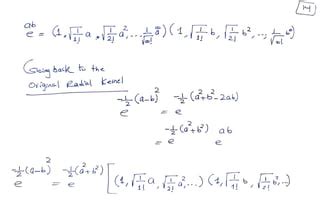 14
e^{ab} = (1, √(1/1!) a, √(1/2!) a², ... √(1/∞!) a^∞) (1, √(1/1!) b, √(1/2!) b², ..., √(1/∞!) b^∞)
Going back to the
Original Radial Kernel
e^{-½(a-b)²} = e^{-½(a²+b²-2ab)}
= e^{-½(a²+b²)} e^{ab}
e^{-½(a-b)²} = e^{-½(a²+b²)} [(1, √(1/1!) a, √(1/2!) a², ...) (1, √(1/1!) b, √(1/2!) b², ...)